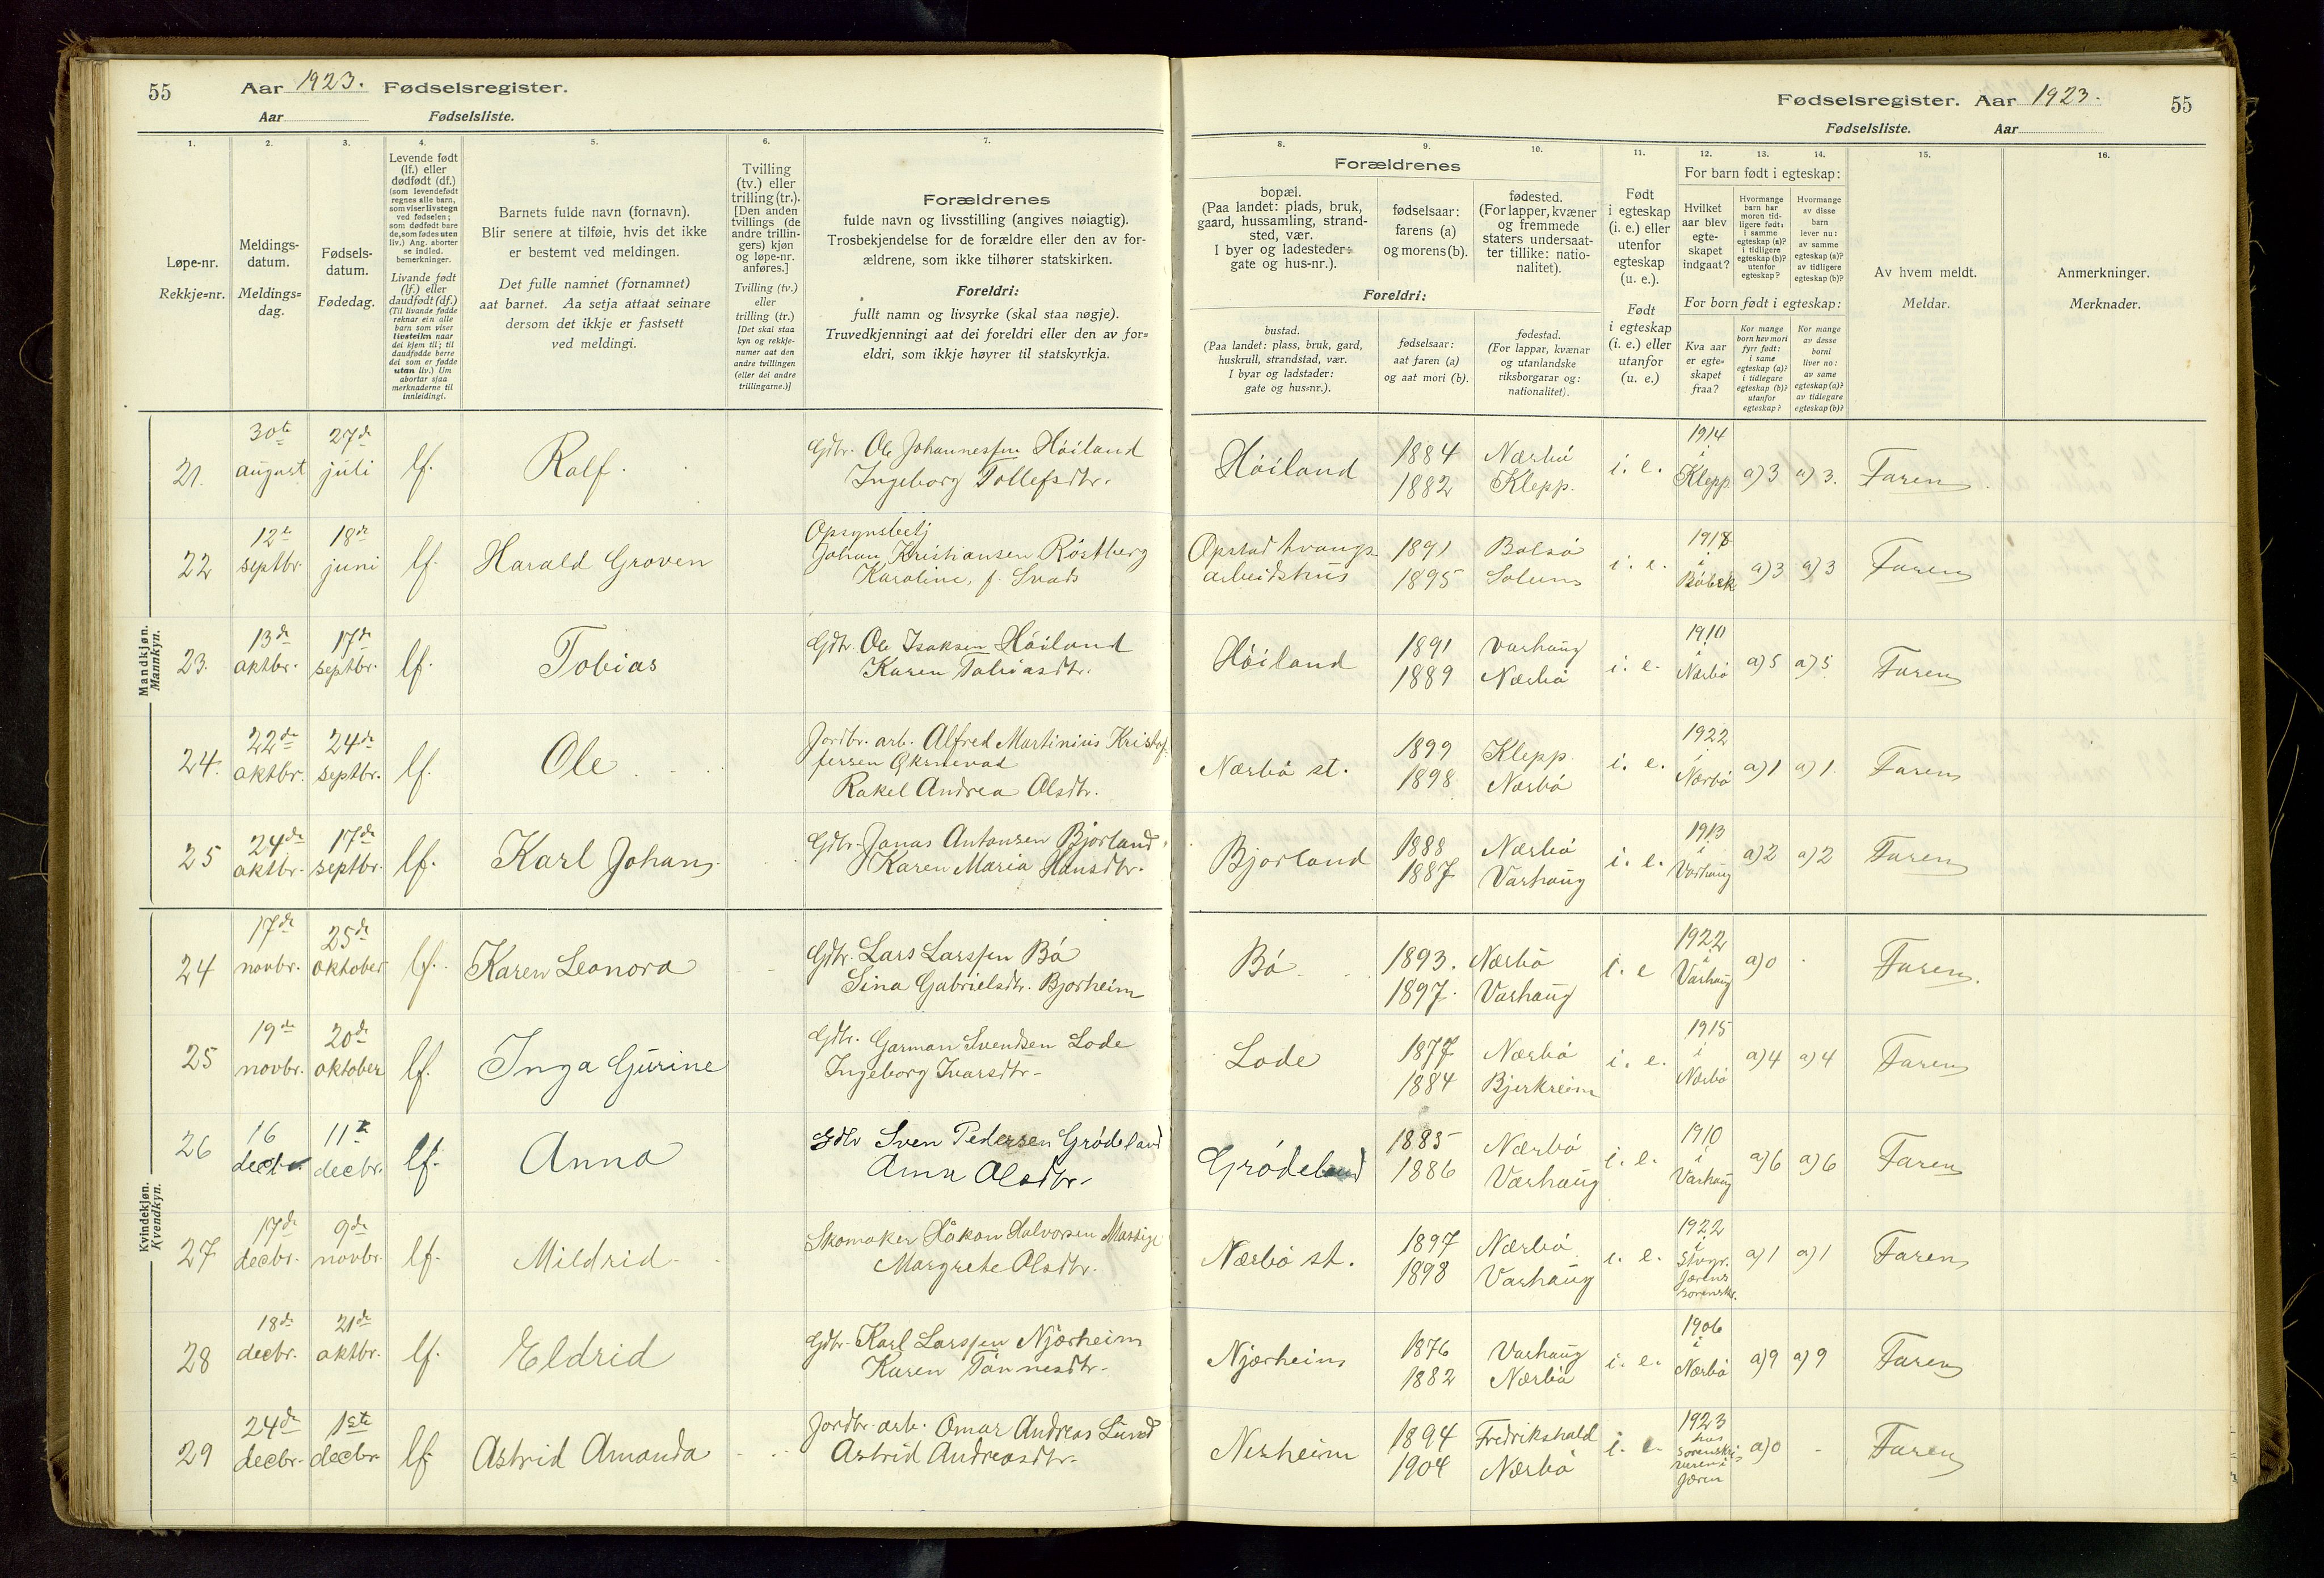 55 Aar 1923. Fødselsregister.
Aar Fødselsliste.
Fødselsregister. Aar 1923. 55
Fødselsliste. Aar
1. 2. 3. 4. 5. 6. 7.
Løpe-nr.
Rekkje=nr.
Meldings-
datum.
Meldings=
dag.
Fødsels-
datum.
Fødedag.
Levende født
(lf.) eller
dødfødt (df.)
(som levendefødt
regnes alle barn,
som viser livstegn
ved fødselen;
som dødfødt bare
de, som fødes uten
liv.) Ang. aborter
se indled.
bemerkninger.
Livande født
(lf.) eller
daudfødt (df.)
(Til livande fødde
reknar ein alle
barn som viser
livsteikn naar
dei kjem til; til
daudfødde berre
dei som er fødde
utan liv.) Um
abortar sjaa
merknaderne til
innleidingi.
Barnets fulde navn (fornavn).
Blir senere at tilføie, hvis det ikke
er bestemt ved meldingen.
Det fulle namnet (fornamnet)
aat barnet. Aa setja attaat seinare
dersom det ikkje er fastsett
ved meldingi.
Tvilling
(tv.) eller
trilling (tr.).
[Den anden
tvillings (de
andre trillin-
gers) kjøn
og løpe-nr.
anføres.]
Tvilling (tv.)
eller
trilling (tr.)
[Det skal staa
kyn og rekkje-
numer aat den
andre tvillingen
(eller dei andre
trillingarne.)]
Forældrenes
fulde navn og livsstilling (angives nøiagtig).
Trosbekjendelse for de forældre eller den av for-
ældrene, som ikke tilhører statskirken.
Foreldri:
fullt namn og livsyrke (skal staa nøgje).
Truvedkjenningi aat dei foreldri eller den av for=
eldri, som ikkje høyrer til statskyrkja.
8. 9. 10. 11. 12. 13. 14. 15. 16.
Forældrenes
bopæl.
(Paa landet: plads, bruk,
gaard, hussamling, strand-
sted, vær.
I byer og ladesteder:
gate og hus-nr.).
fødselsaar:
farens (a)
og morens (b).
fødested.
(For lapper, kvæner
og fremmede
staters undersaat-
ter tillike: natio-
nalitet).
Foreldri:
bustad.
(Paa landet: plass, bruk, gard,
huskrull, strandstad, vær.
I byar og ladstader:
gate og hus=nr.).
fødselsaar:
aat faren (a)
og aat mori (b).
fødestad.
(For lappar, kvænar
og utanlandske
riksborgarar og:
nationalitet).
Født
i egteskap
(i. e.) eller
utenfor
egteskap
(u. e.).
Født
i egteskap
(i. e.) eller
utanfor
(u. e.)
For barn født i egteskap:
Hvilket
aar blev
egte-
skapet
indgaat?
Hvormange
barn har
moren tid-
ligere født:
i samme
egteskap (a)?
i tidligere
egteskap (b)?
utenfor
egteskap?
Hvormange
av disse
barn
lever nu:
av samme
egteskap (a)?
av tidligere
egteskap (b)?
For born født i egteskap:
Kva aar
er egte=
skapet
fraa?
Kor mange
born hev mori
fyrr født:
i same
egteskap (a)?
i tidlegare
egteskap (b)?
utanfor
egteskap?
Kor mange
av desse
borni
liver no:
av same
egteskap (a)?
av tidlegare
egteskap (b)?
Av hvem meldt.
Meldar.
Anmerkninger.
Merknader.
Mandkjøn.
Mannkyn.
21. 30te august 27de juli lf. Rolf. Gdbr. Ole Johannessen Høiland
Ingeborg Tollefsdtr.
Høiland 1884 Nærbø i. e. 1914 i Klepp a) 3 a) 3. Faren.
1882 Klepp.
22 12te septbr. 18de juni lf. Harald Groven Opsynsbetj
Johan Kristiansen Röstberg
Karoline, f. Svads
Opstad tvangs arbeidshus 1891 Bolsø i. e. 1918 i a) 3 a) 3 Faren
1895 Solum
23. 13de oktbr. 17de septbr. lf. Tobias Gdbr. Ole Isaksen Høiland
Karen Tobiasdtr.
Høiland 1891 Varhaug i. e. 1910 i Nærbø a) 5 a) 5 Faren
1889 Nærbø
24. 22de oktbr. 24de septbr. lf. Ole Jordbr. arb. Alfred Martinius Kristof-
fersen
Rakel Andrea Olsdtr.
Nærbø st. 1899 Klepp i. e. 1922 i Nærbø a) 1 a) 1. Faren
1898 Nærbø
25 24de oktbr. 17de septbr. lf. Karl Johan Gdbr. Jonas Antonsen Bjorland
Karen Maria Hansdtr.
Bjorland 1888 Nærbø i. e. 1913 i Varhaug a) 2 a) 2 Faren
1887 Varhaug
Kvindekjøn.
Kvendkyn.
24 17de novbr. 25de oktober lf. Karen Leonora Gdbr. Lars Larssen Bø
Sina Gabrielsdtr. Bjorheim
Bø 1893. Nærbø i. e 1922 i Varhaug a) 0 Faren.
1897. Varhaug
25 19de novbr. 20de oktober lf. Inga Gurine Gdbr. Garman Svendsen Lode
Ingeborg Ivarsdtr.
Lode 1877 Nærbø i. e. 1915 i Nærbø a) 4 a) 4 Faren
1884 Bjerkreim
26 16 decbr 11te decbr. lf. Anna Gdbr Sven Pedersen Grødeland
Anna Olsdtr.
Grødeland 1885 Nærbø i. e. 1910 i Varhaug a) 6 a) 6 Faren
1886 Varhaug
27 17de decbr. 9de novbr. lf. Mildrid Skomaker Håkon Halvorsen
Margrete Olsdtr.
Nærbø st. 1897 Nærbø i. e. 1922 i a) 1 a) 1 Faren
1898 Varhaug
28 18de decbr. 21de oktbr. lf. Eldrid Gdbr. Karl Larssen Njærheim
Karen Tønnesdtr.
Njærheim 1876 Varhaug i. e. 1906 i Nærbø a) 9 a) 9 Faren
1882 Nærbø
29 24de decbr. 1ste decbr. lf. Astrid Amanda Jordbr. arb. Omar Andreas Lund
Astrid Andreasdtr.
Nerheim 1894 Fredrikshald i. e. 1923 hos sorenskriveren i Jæren a) 0 - Faren
1904 Nærbø